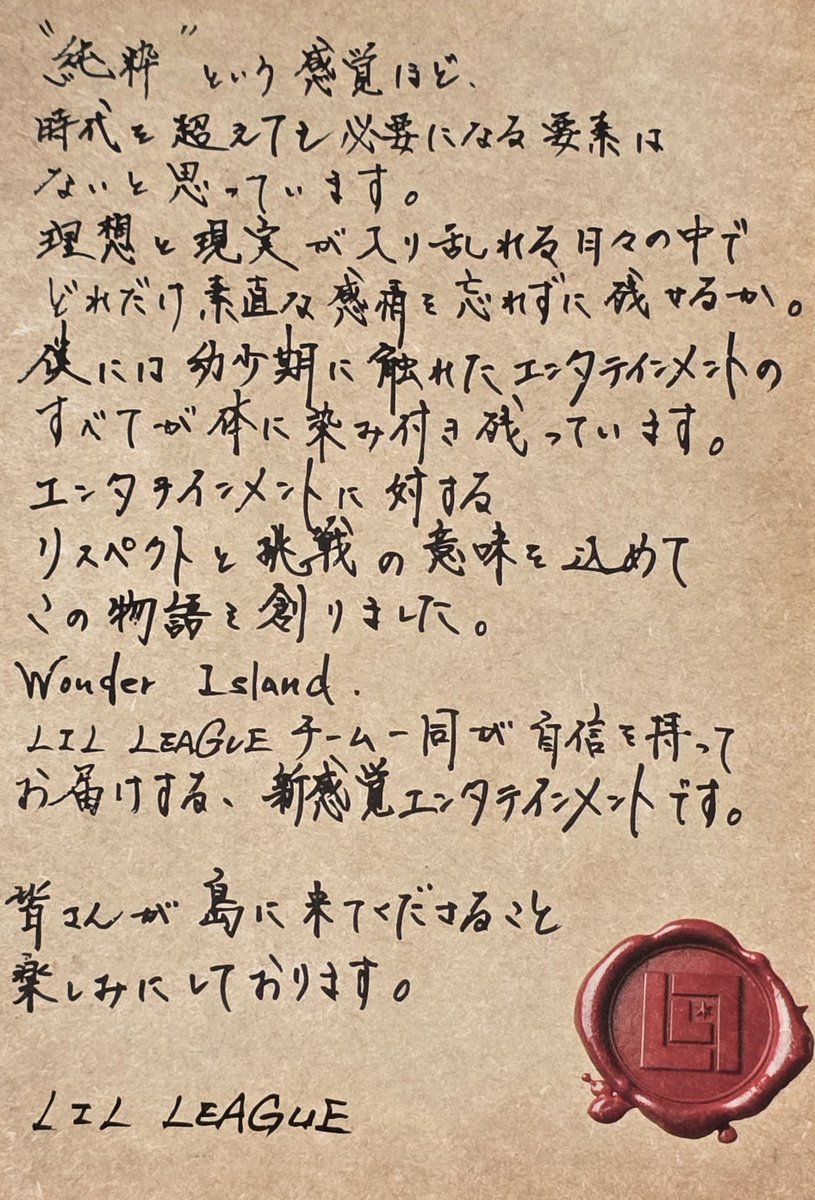 "純粋"という感覚ほど、
時代を超えても必要になる要素は
ないと思っています。
理想と現実が入り乱れる日々の中で
どれだけ素直な感情を忘れずに残せるか。
僕には幼少期に触れたエンタテインメントの
すべてが体に染み付き残っています。
エンタテインメントに対する
リスペクトと挑戦の意味を込めて
この物語を創りました。
Wonder Island.
LIL LEAGUE チーム一同が自信を持って
お届けする、新感覚エンタテインメントです。
皆さんが島に来てくださること
楽しみにしております。
LIL LEAGUE